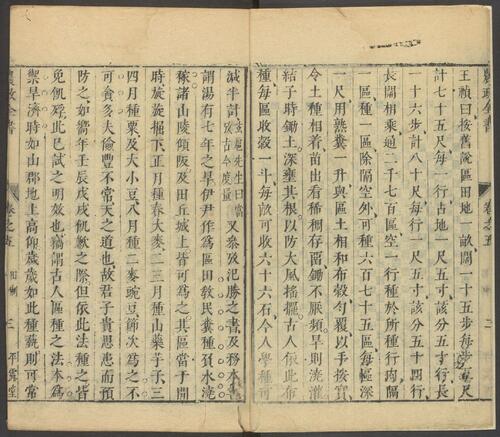 王禎曰按舊說區田地一畝闊一十五步每步五尺
計七十五尺每一行占地一尺五寸該分五十行長
一十六步計八十尺每行一尺五寸該分五十四行
長闊相乘通二千七百區空一行種於所種行內隔
一區種一區除隔空外可種六百七十五區每區深
一尺用熟糞一升與區土相和布穀勻覆以手按實
令土種相着苗出看稀稠存留鋤不厭頻旱則澆灌
結子時鋤土深壅其根以防大風搖擺古人依此布
種每區收穀一斗每畝可收六十六石今人學種可
減半計又參攷氾勝之書及務本書
謂湯有七年之旱伊尹作爲區田敎民糞種負水澆
稼諸山陵傾阪及田丘城上皆可爲之其區當于閒
時旋旋掘下正月種春大麥二三月種山藥芋子三
四月種粟及大小豆八月種二麥豌豆節次爲之不
可貪多夫儉豐不常天之道也故君子貴思患而預
防之如嚮年壬辰戊戌飢歉之際但依此法種之皆
免飢殍此已試之明效也竊謂古人區種之法本爲
禦旱濟時如山郡地土高仰歲歲如此種蓺則可常
農政全書
卷之五
三
平露堂
二